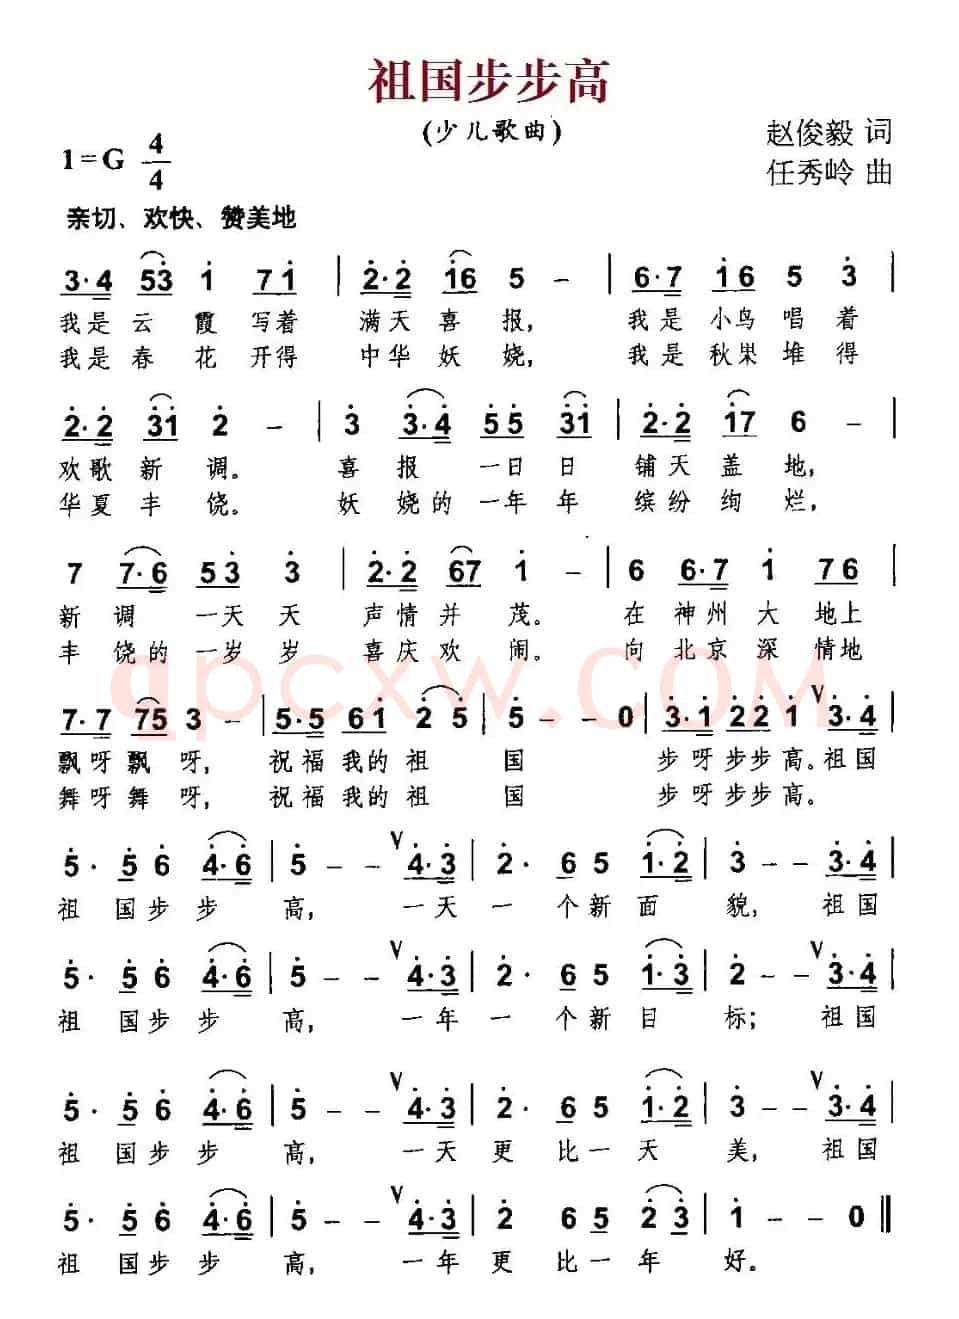 祖国步步高
(少儿歌曲)
1=G 4/4
赵俊毅 词
任秀岭 曲
亲切、欢快、赞美地
3·4 53 1 71 | 2·2 16 5 - | 6·7 16 5 3 |
我是云霞写着 满天喜报, 我是小鸟唱着
我是春花开得 中华妖娆, 我是秋果堆得
2·2 31 2 - | 3 3·4 55 31 | 2·2 17 6 - |
欢歌新调。 喜报一日日 铺天盖地,
华夏丰饶。 妖娆的一年年 缤纷绚烂,
7 7·6 53 3 | 2·2 67 1 - | 6 6·7 1 76 |
新调一天天 声情并茂。 在神州大地上
丰饶的一岁岁 喜庆欢闹。 向北京深情地
7·7 75 3 - | 5·5 61 2 5 | 5 - - 0 | 3·1 22 1 V 3·4 |
飘呀飘呀, 祝福我的祖国 步呀步步高。祖国
舞呀舞呀, 祝福我的祖国 步呀步步高。
5· 5 6 4·6 | 5 - - V 4·3 | 2· 6 5 1·2 | 3 - - V 3·4 |
祖国步步高, 一天一个新面貌, 祖国
5· 5 6 4·6 | 5 - - V 4·3 | 2· 6 5 1·3 | 2 - - V 3·4 |
祖国步步高, 一年一个新目标; 祖国
5· 5 6 4·6 | 5 - - V 4·3 | 2· 6 5 1·2 | 3 - - V 3·4 |
祖国步步高, 一天更比一天美, 祖国
5· 5 6 4·6 | 5 - - V 4·3 | 2 6 5 2 3 | 1 - - 0 ‖
祖国步步高, 一年更比一年好。
qpcxw.COM